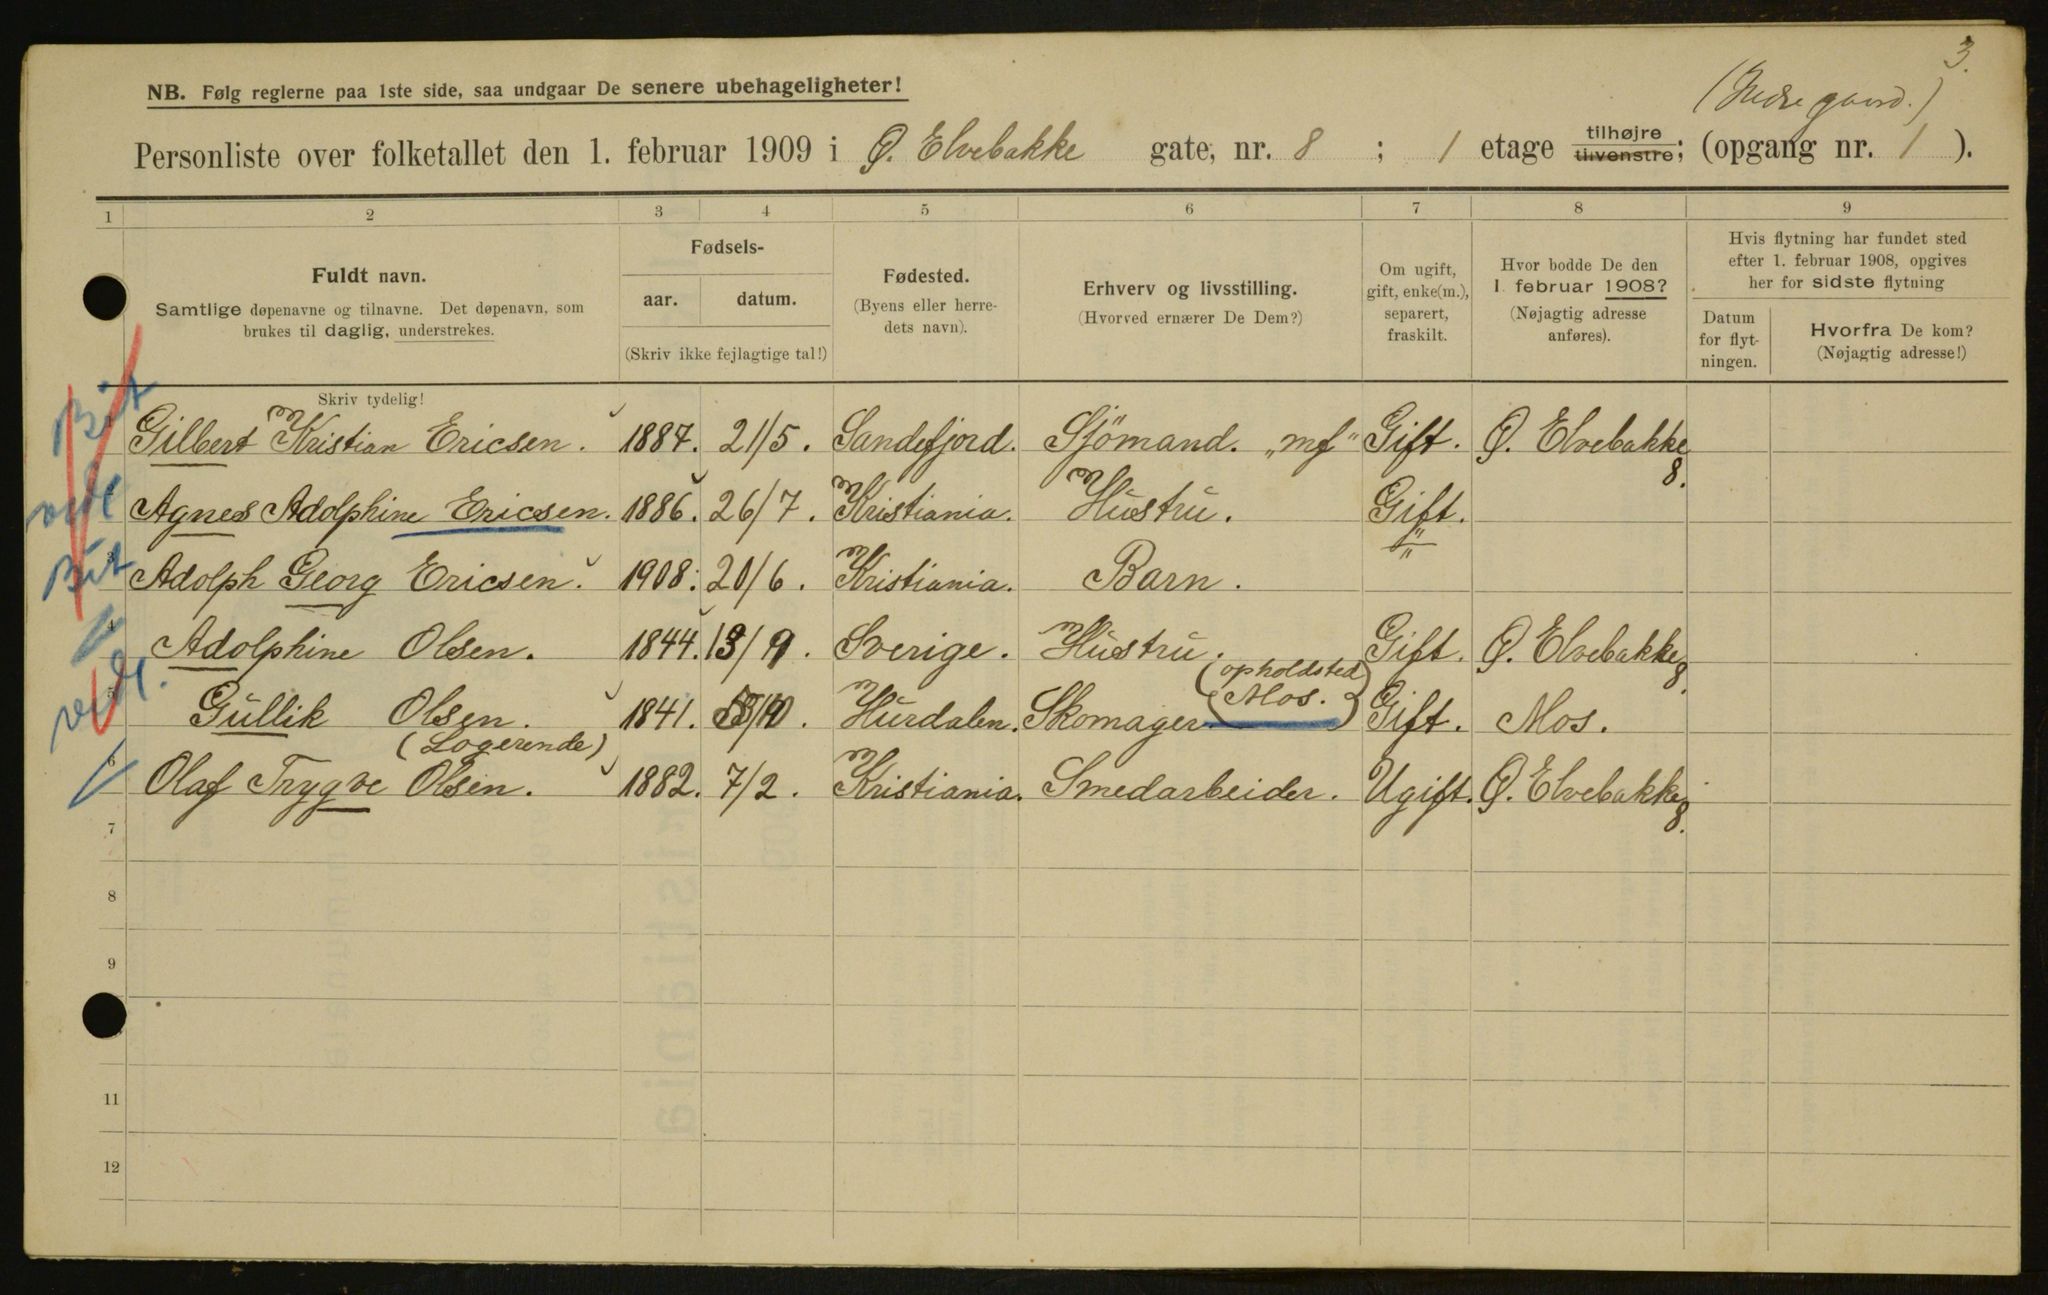 3.
(Indre gaard.)
NB. Følg reglerne paa 1ste side, saa undgaar De senere ubehageligheter!
Personliste over folketallet den 1. februar 1909 i Ø. Elvebakke gate, nr. 8 ; 1 etage tilhøjre tilvenstre; (opgang nr. 1 ).
1 2 3 4 5 6 7 8 9
Fuldt navn.
Samtlige døpenavne og tilnavne. Det døpenavn, som
brukes til daglig, understrekes.
Fødsels-
aar. datum.
(Skriv ikke fejlagtige tal!)
Fødested.
(Byens eller herre-
dets navn).
Erhverv og livsstilling.
(Hvorved ernærer De Dem?)
Om ugift,
gift, enke(m.),
separert,
fraskilt.
Hvor bodde De den
1. februar 1908?
(Nøjagtig adresse
anføres).
Hvis flytning har fundet sted
efter 1. februar 1908, opgives
her for sidste flytning
Datum
for flyt-
ningen.
Hvorfra De kom?
(Nøjagtig adresse!)
Skriv tydelig!
Gilbert Kristian Ericsen. 1887. 21/5. Sandefjord. Sjömand. „mf“ Gift. Ø. Elvebakke 8.
Agnes Adolphine Ericsen. 1886. 26/7. Kristiania. Hustru. Gift.
3 Adolph Georg Ericsen. 1908. 20/6. Kristiania. Barn. "
4 Adolphine Olsen. 1844. Sverige. Hustru. Gift. Ø. Elvebakke 8.
5 Gullik Olsen. 1841. Hurdalen. Skomager. (opholdsted Mos.) Gift. Mos.
(Logerende)
6 Olaf Trygve Olsen. 1882. 7/2. Kristiania. Smedarbeider. Ugift. Ø. Elvebakke 8.
7
8
9
11
12